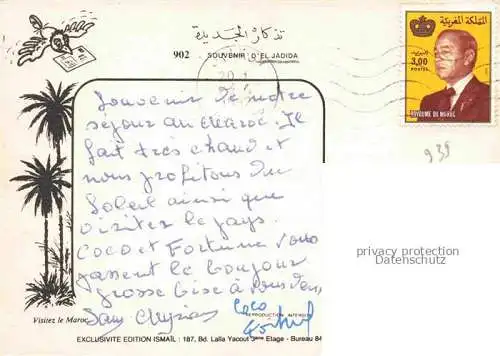 تذكار الجديدة
902 SOUVENIR D'EL JADIDA
المملكة المغربية
3,00
POSTES
ROYAUME DU MAROC
20
939
Souvenir de notre
séjour au Maroc. Il
fait très chaud et
nous profitons du
Soleil ainsi que
visiter le pays.
Coco et Fortune vous
passent le bonjour
grosse bise à tous deux,
Coco
privacy protection
Datenschutz
Visitez le Maroc
REPRODUCTION INTERDITE
EXCLUSIVITE EDITION ISMAÏL : 187, Bd. Lalla Yacout 3ème Etage - Bureau 84